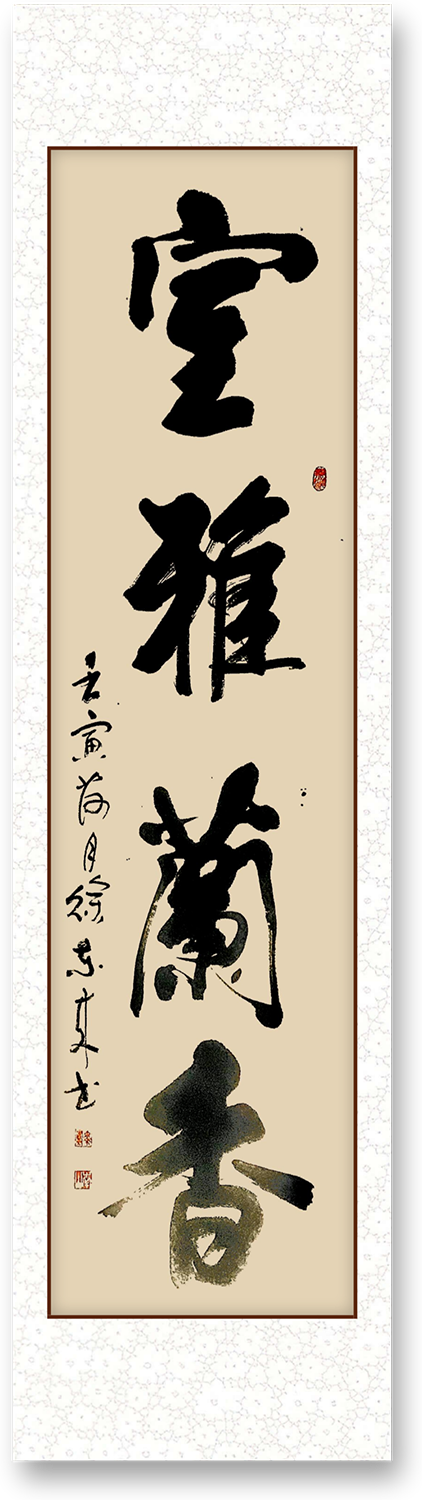 室雅蘭香
壬寅荷月徐東來书